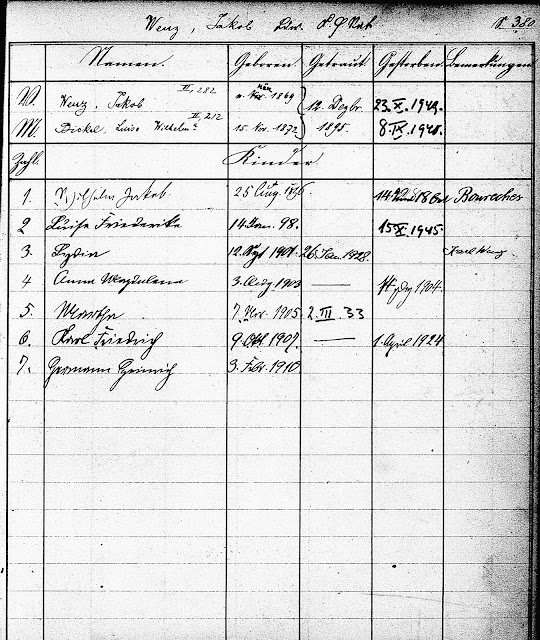 Wenz, Jakob № 380
Namen. Geboren. Getraut. Gestorben. Bemerkungen
V. Wenz, Jakob II, 282 1869 12. Dezbr. 23. X. 1949.
M. Bickel, Luise Wilhelm. II, 212 15. Nov. 1872 1895. 8. IX. 1940.
Zahl. Kinder
1. Wilhelm Jakob 25 Aug. 1896 14 Bouresches
2 Luise Friederike 14. Jan. 98. 15 X. 1945.
3. Lydia 12. Sept 1901. 26 Jan. 1928. Karl Wenz
4 Anna Magdalena 3. Aug. 1903 — 1904
5. Martha 7. Nov. 1905 2. III. 33
6. Karl Friedrich 9. Okt. 1907. — 1. April 1924
7. Hermann Heinrich 3. Febr. 1910